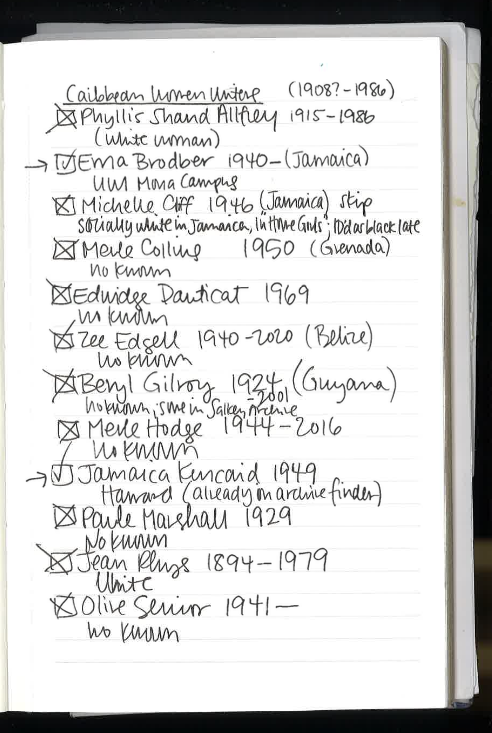 Caribbean Women Writers (1908?-1986)
Phyllis Shand Allfrey 1915-1986
(White woman)
→ Erna Brodber 1940- (Jamaica)
UWI Mona Campus
Michelle Cliff 1946 (Jamaica) skip
socially white in Jamaica, in "Home Girls"; ID'd as black late
Merle Collins 1950 (Grenada)
no known
Edwidge Danticat 1969
no known
Zee Edgell 1940-2020 (Belize)
no known
Beryl Gilroy 1924 (Guyana)
-2001
no known, some in Salkey Archive
Merle Hodge 1944-2016
no known
→ Jamaica Kincaid 1949
Harvard (already on archive finder)
Paule Marshall 1929
No known
Jean Rhys 1894-1979
White
Olive Senior 1941-
no known